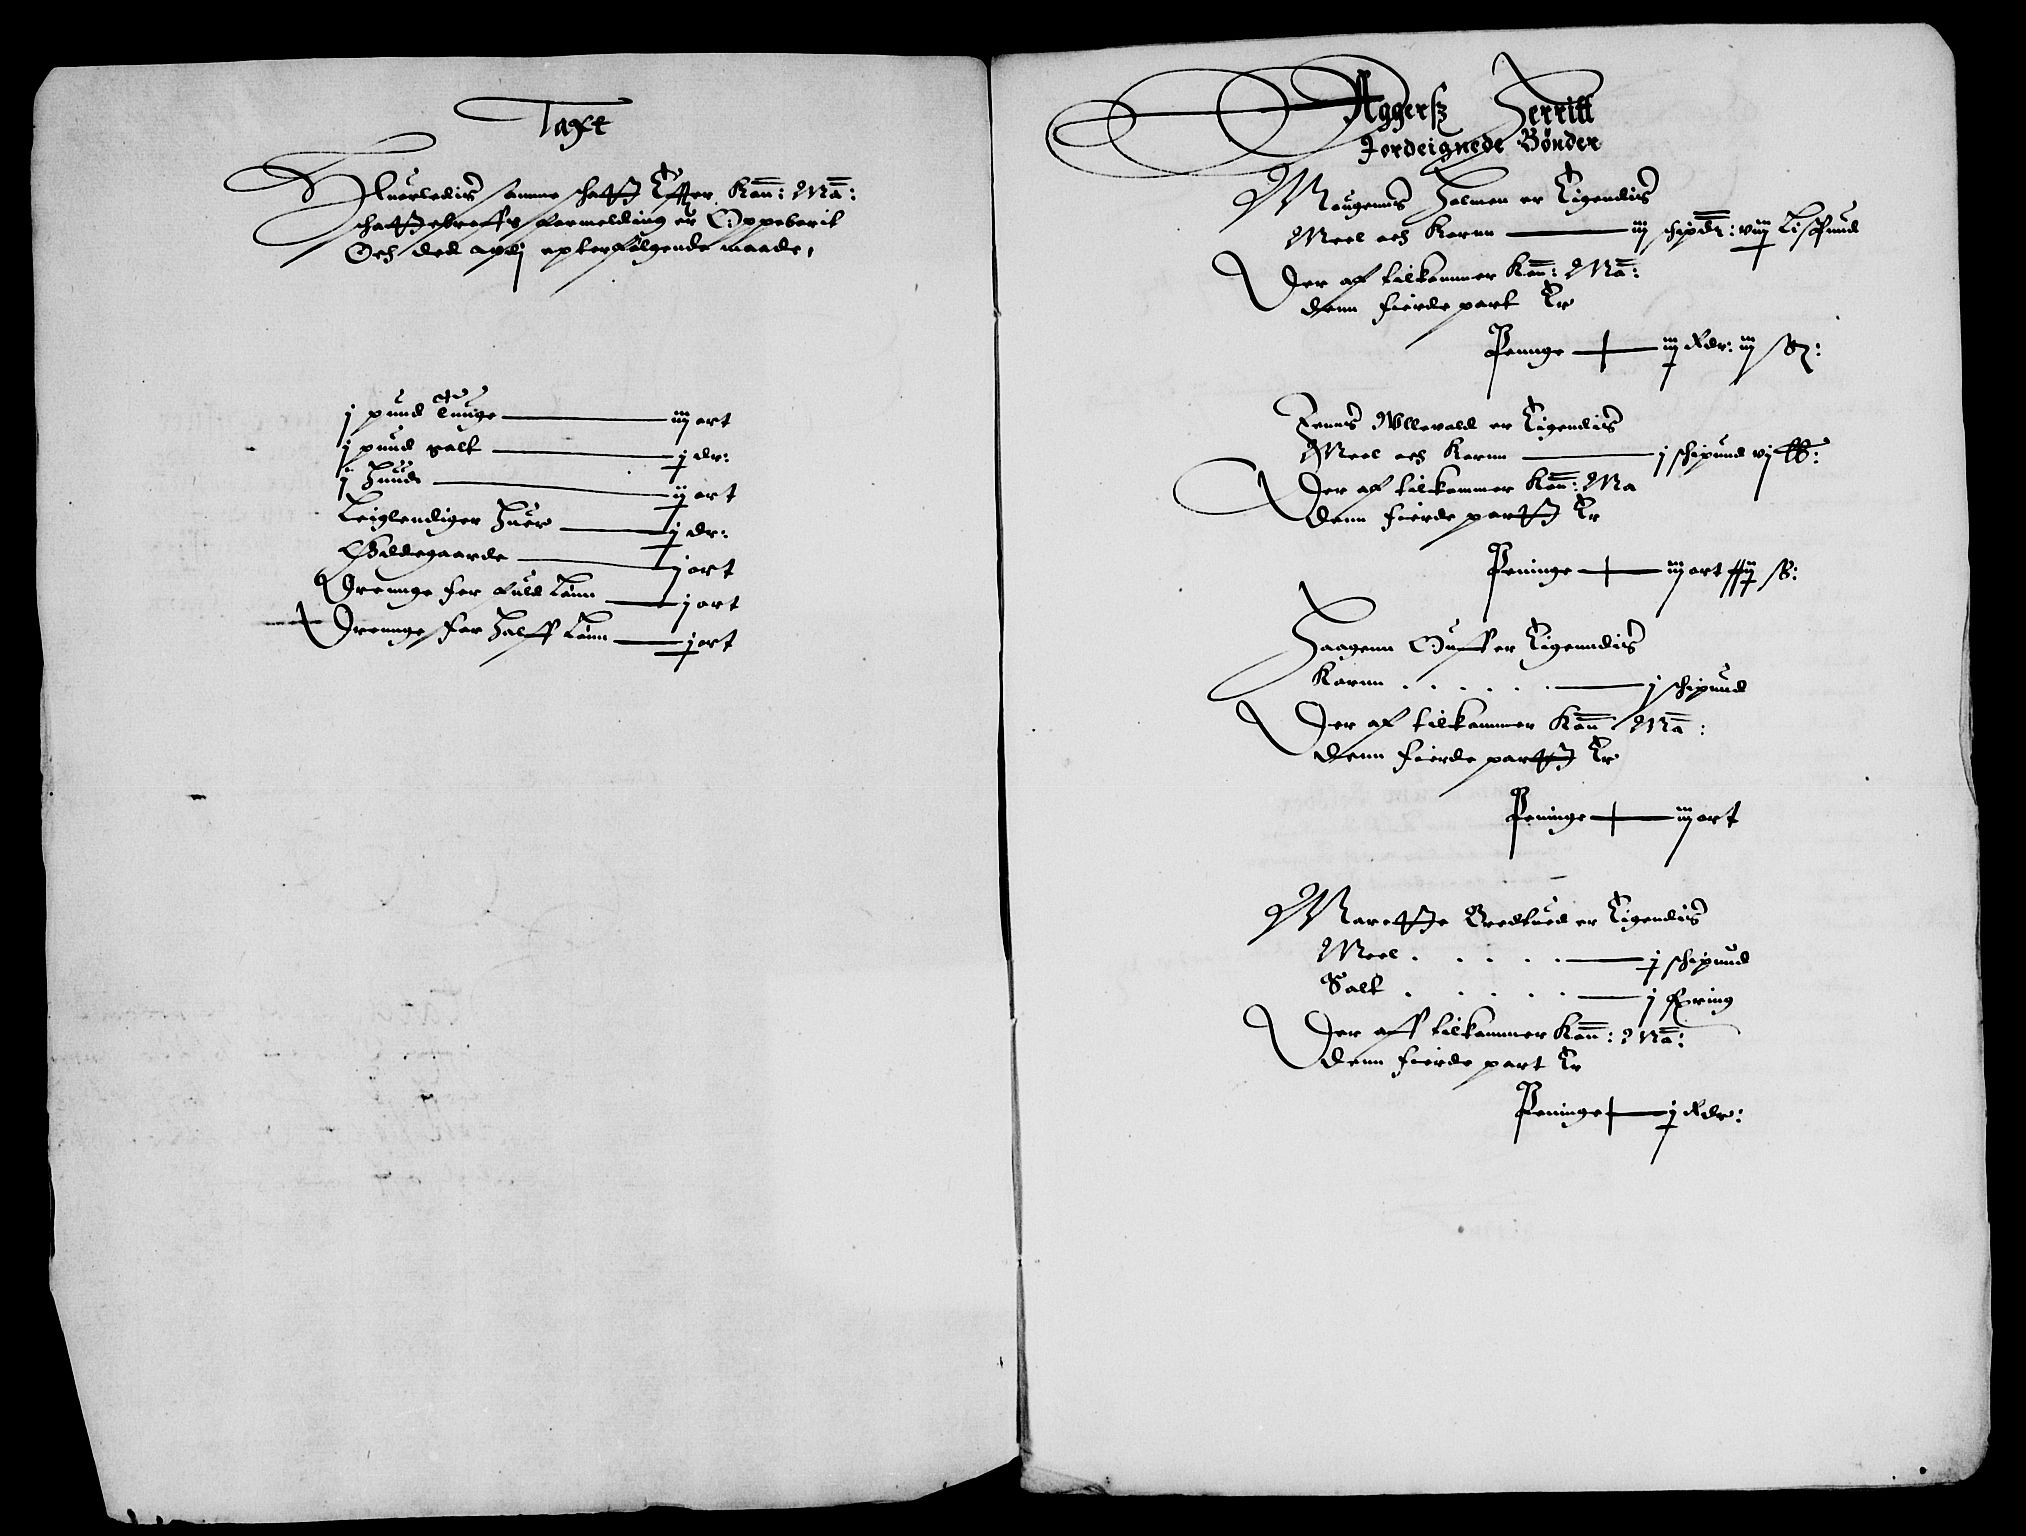 Taxt
Huorledis samme schatt Effter Kon: Ma:
schattebreffs formelding er Oppeborit
Och ded aff epterfølgende maade,
j pund Tunge — iij ort
j pund salt — j dr:
j Huude — ij ort
Leiglendiger Huer — j dr:
Ødegaarde — j ort
Drennge for fuld Lönn — j ort
Drennge for Halff Lönn — j ort
Aggersz Herritt
Jordeignede Bönder
Mougenns Holmen er Eigendis
Meel och Kornn — iij schipd: viij Lispund
Der af tilkommer Kon: Ma:
denn fierde part Er
Pennge — iij Rdr: iij ß:
Jenns Ullevold er Eigendis
Meel och Kornn — j schipund vj
Der af tilkommer Kon: Ma
denn fierde part Er
Peninge — iij ort ß:
Haagenn Gruff er Eigenndis
Kornn . . . . . — j schipund
Der af tilkommer Kon Ma:
denn fierde part Er
Peninge — iij ort
Marette Bredtued er Eigendis
Meel . . . . . — j schipund
Salt . . . . . — j Fering
Der aff tilkommer Kon: Ma:
denn fierde part Er
Peninge — j Rdr: